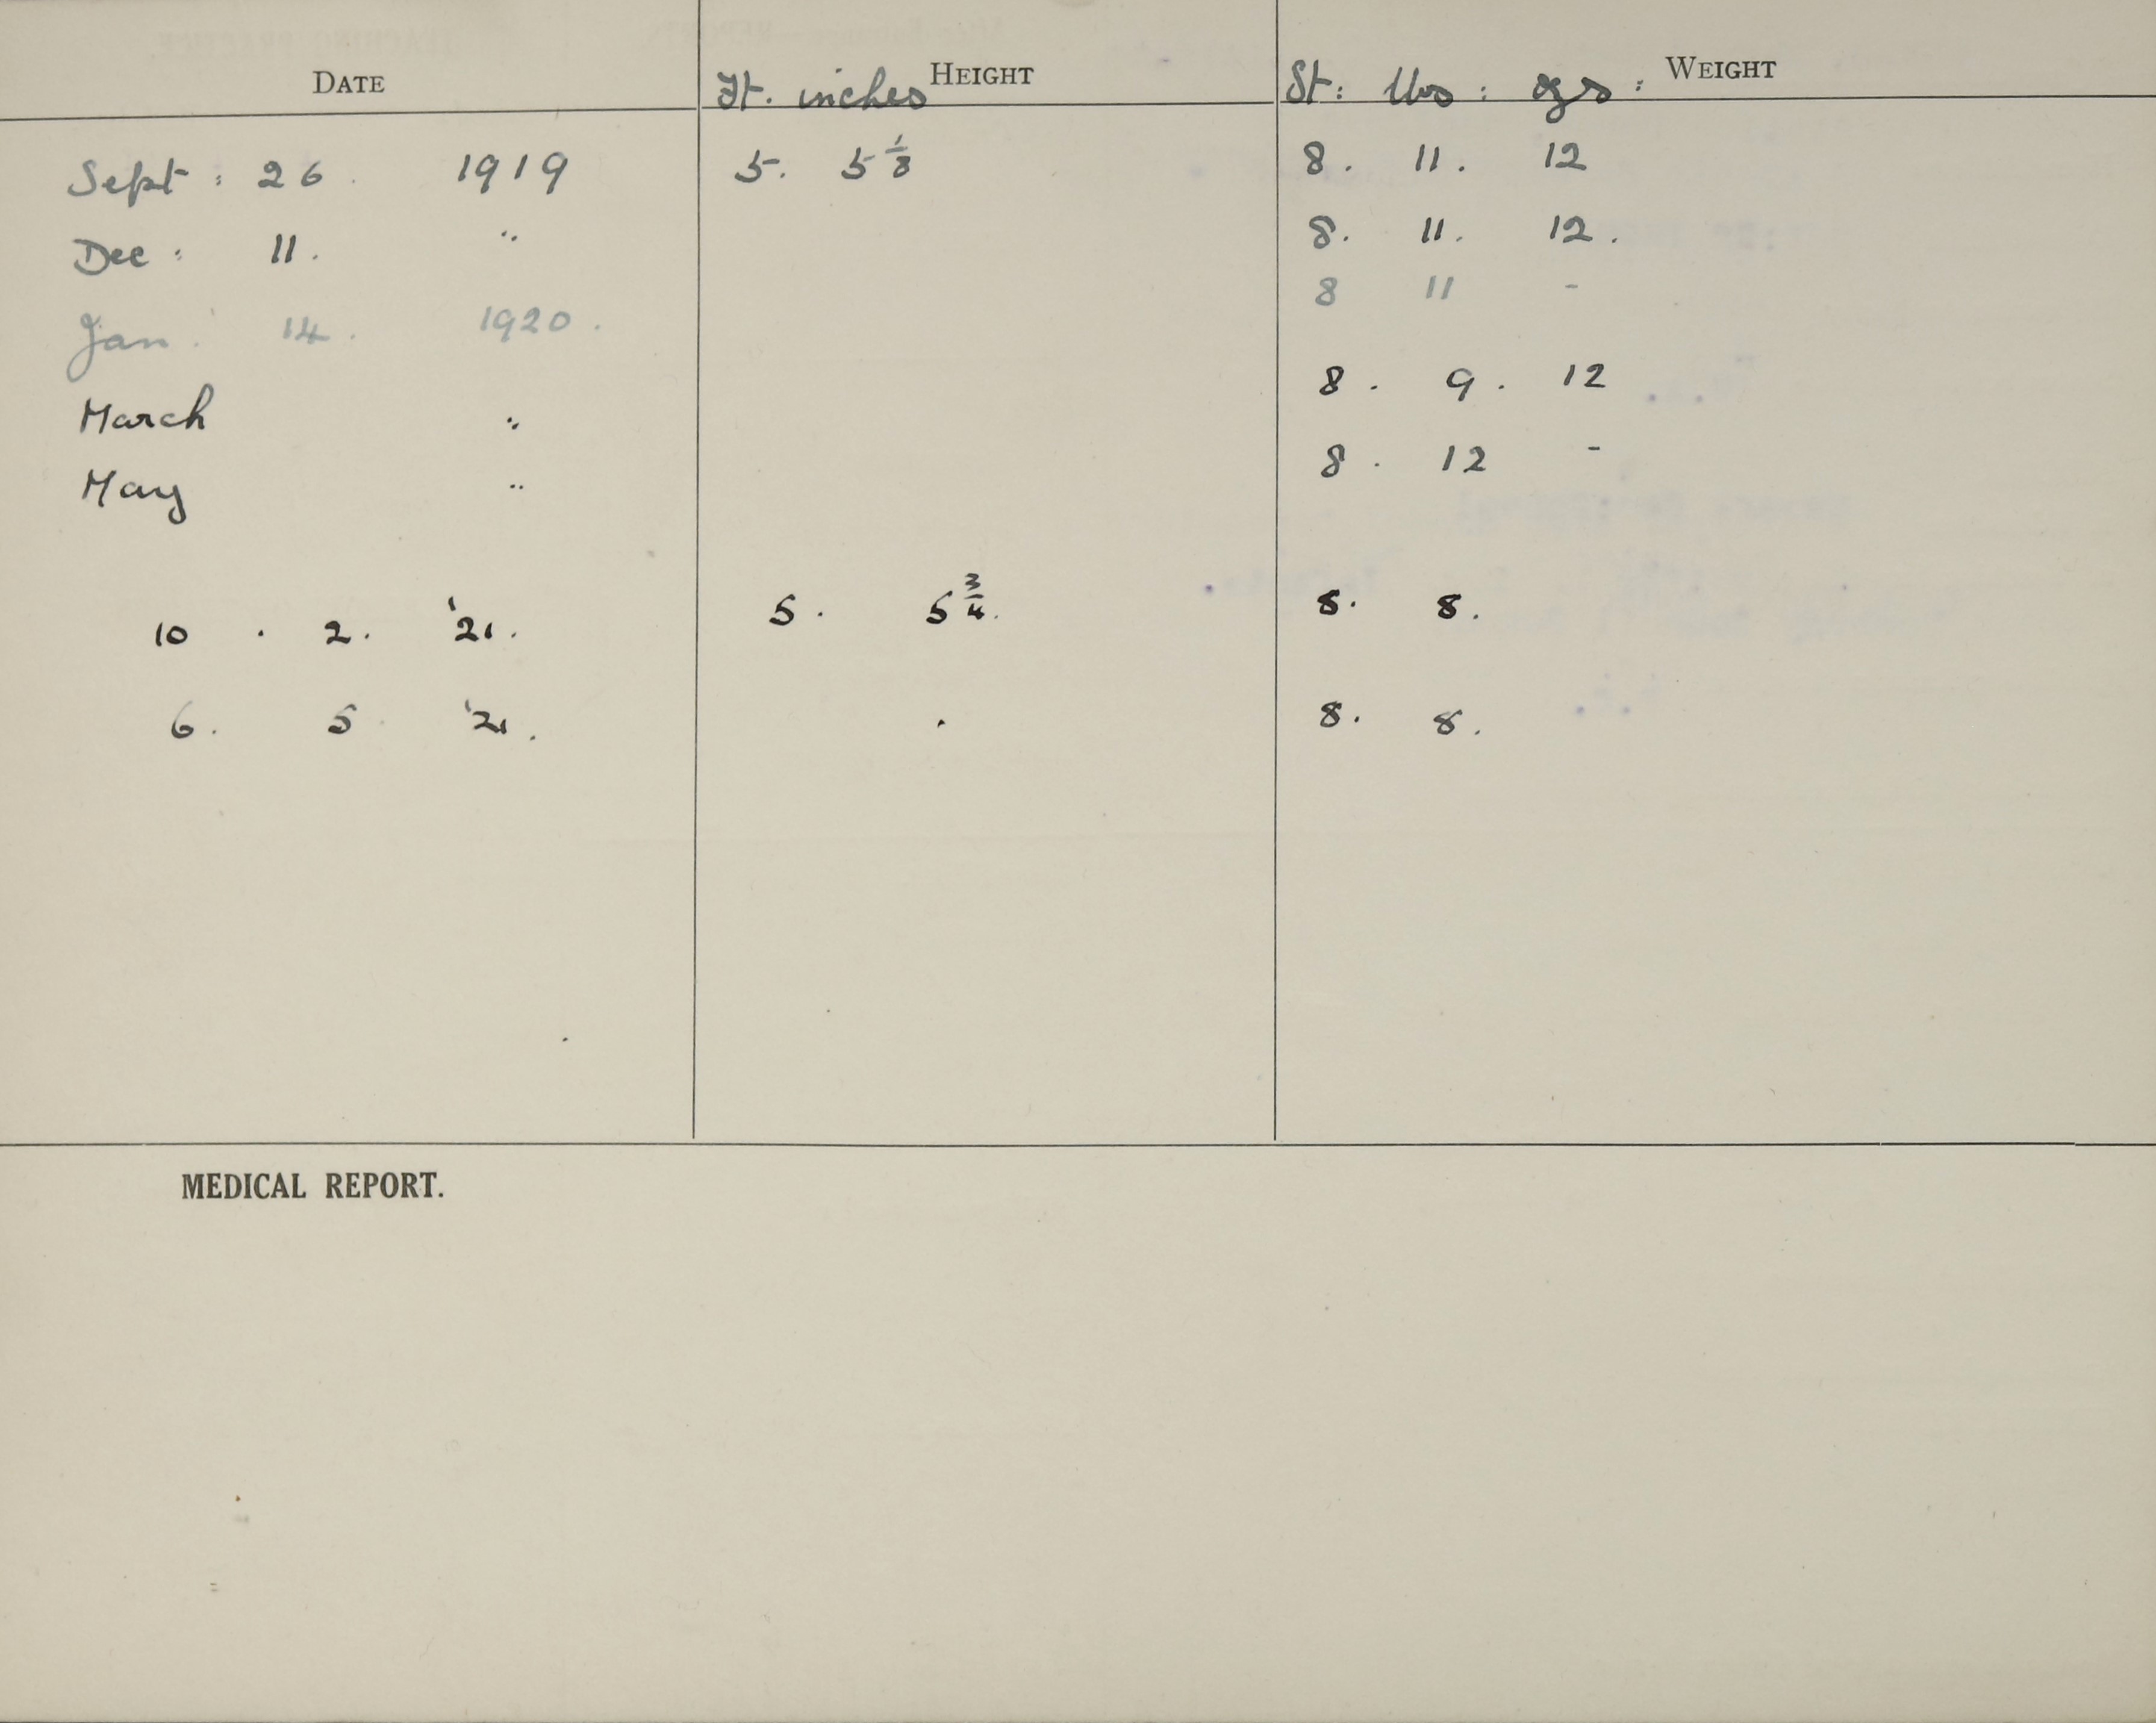 DATE Ft. inches HEIGHT St: lbs: ozs: WEIGHT
Sept: 26. 1919 5. 5 1/8 8. 11. 12
Dec: 11. " 8. 11. 12.
Jan: 14. 1920. 8 11 -
March " 8. 9. 12
May " 8. 12 -
10. 2. '21. 5. 5 3/4. 8. 8.
6. 5. '21. 8. 8.
MEDICAL REPORT.